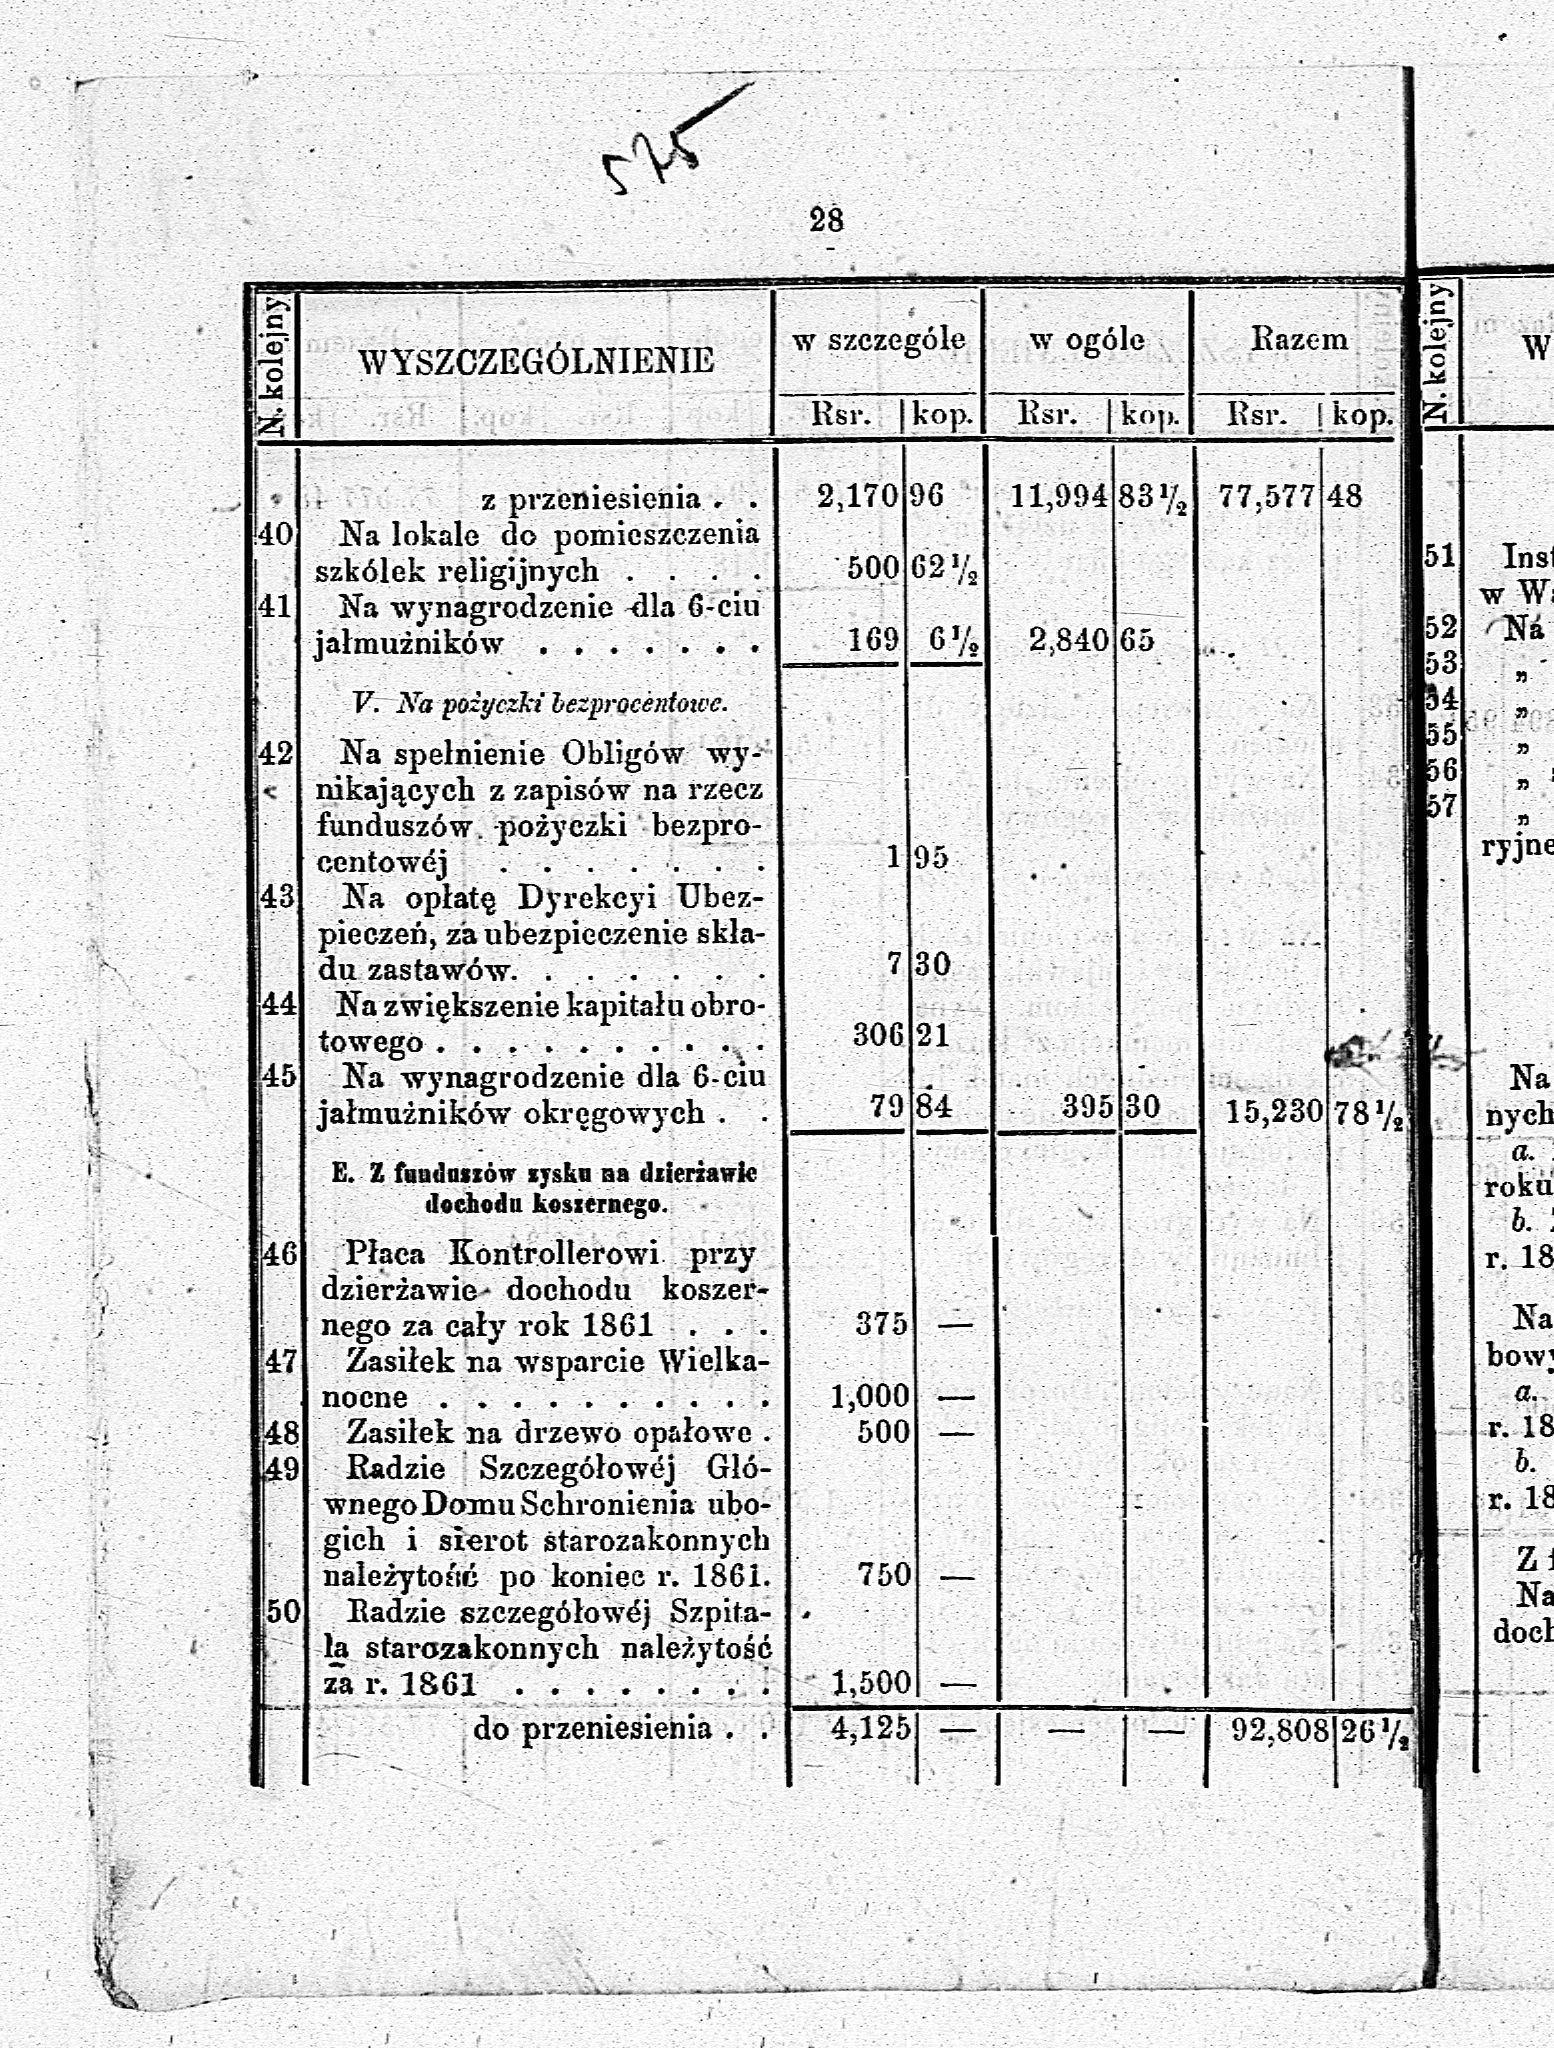 575
28
N. kolejny WYSZCZEGÓLNIENIE w szczególe w ogóle Razem
Rsr. kop. Rsr. kop. Rsr. kop.
z przeniesienia . . 2,170 96 11,994 83½ 77,577 48
40 Na lokale do pomieszczenia
szkólek religijnych . . . . 500 62½
41 Na wynagrodzenie dla 6-ciu
jałmużników . . . . . . . 169 6½ 2,840 65
V. Na pożyczki bezprocentowe.
42 Na spełnienie Obligów wy-
nikających z zapisów na rzecz
funduszów pożyczki bezpro-
centowéj . . . . . . . 1 95
43 Na opłatę Dyrekcyi Ubez-
pieczeń, za ubezpieczenie skła-
du zastawów. . . . . . . 7 30
44 Na zwiększenie kapitału obro-
towego . . . . . . . . . . 306 21
45 Na wynagrodzenie dla 6-ciu
jałmużników okręgowych . . 79 84 395 30 15,230 78½
E. Z funduszów zysku na dzierżawie
dochodu koszernego.
46 Płaca Kontrollerowi przy
dzierżawie dochodu koszer-
nego za cały rok 1861 . . . 375 —
47 Zasiłek na wsparcie Wielka-
nocne . . . . . . . . . . 1,000 —
48 Zasiłek na drzewo opałowe . 500 —
49 Radzie Szczegółowéj Głó-
wnego Domu Schronienia ubo-
gich i sierot starozakonnych
należytość po koniec r. 1861. 750 —
50 Radzie szczegółowéj Szpita-
la starozakonnych należytość
za r. 1861 . . . . . . . . 1,500 —
do przeniesienia . . 4,125 — — — 92,808 26½
N. kolejny W
51 Inst
w Wa
52 Na
53 „
54 „
55 „
56 „
57 „
ryjne
Na
nych
a.
roku
b.
r. 18
Na
bowy
a.
r. 18
b.
r. 18
Z f
Na
doch